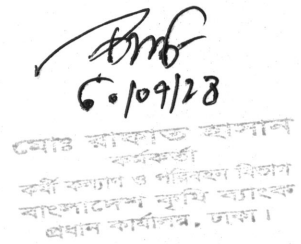 ৩০/০৭/২৪
মোঃ রাকাত হাসান
কর্মকর্তা
কর্মী কল্যাণ ও পরিবহন বিভাগ
বাংলাদেশ কৃষি ব্যাংক
প্রধান কার্যালয়, ঢাকা।